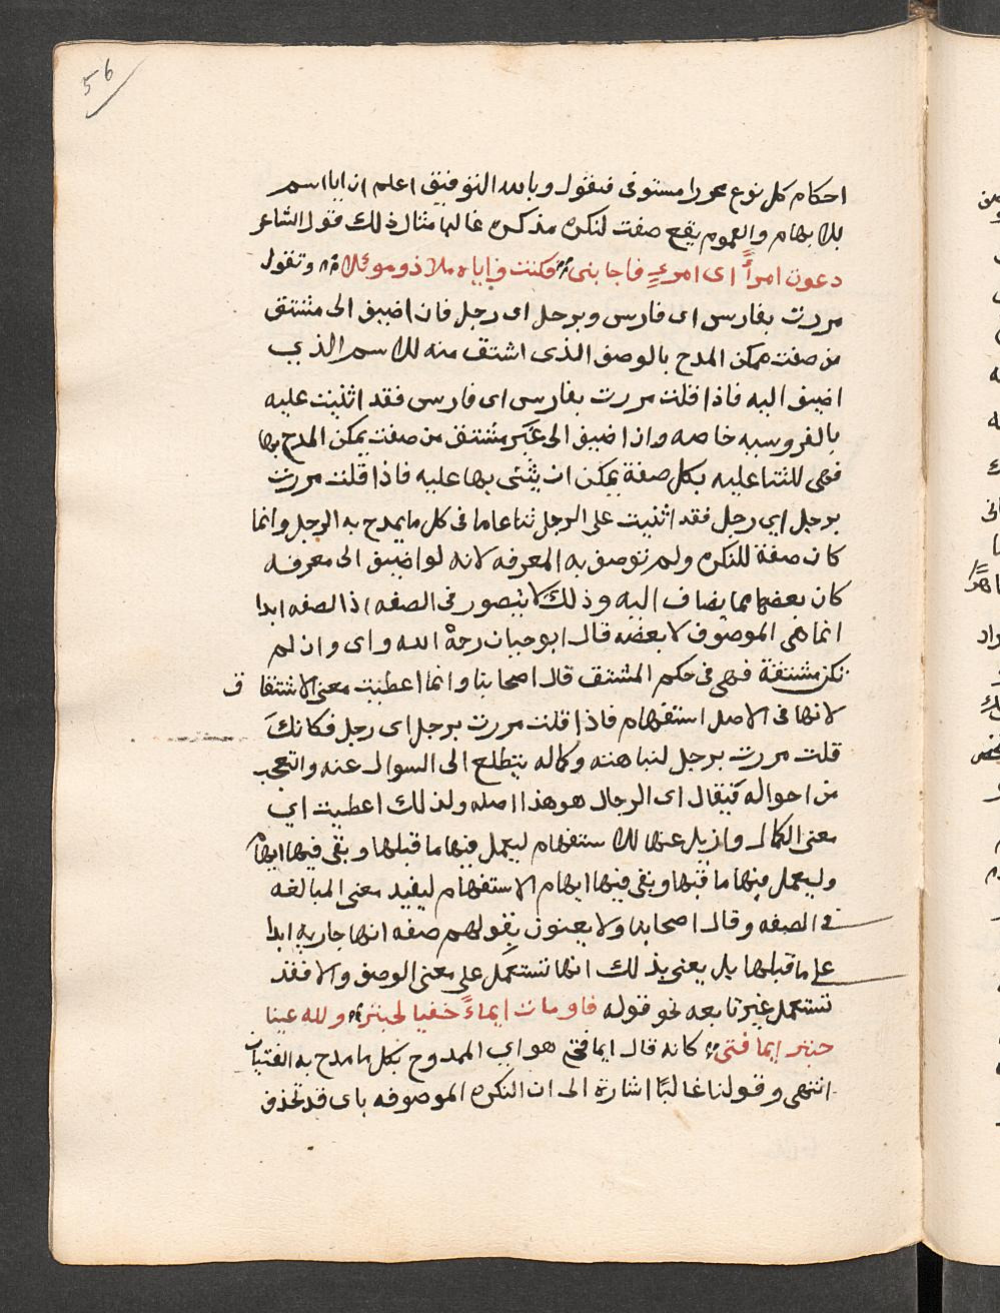 56
احكام كل نوع محررا مستوفى فنقول وبالله التوفيق اعلم ان ايا اسم
بلا بهام والعموم يقع صفت لنكره مذكره غالبا مثال ذلك قول الشاعر
دعوت امرأً اى امرءٍ فاجابنى فكنت واياه ملاذ وموئلا وتقول
مررت بفارس اى فارس وبرجل اى رجل فان اضيف الى مشتق
من صفت يمكن المدح بالوصف الذى اشتق منه للاسم الذي
اضيف اليه فاذا قلت مررت بفارس اى فارس فقد اثنيت عليه
بالفروسيه خاصه واذا ضيف الى غير مشتق من صفت يمكن المدح بها
فهى للثنا عليه بكل صفة يمكن ان يثنى بها عليه فاذا قلت مررت
برجل ايى رجل فقد اثنيت على الرجل ثنا عاما فى كل ما يمدح به الرجل وانما
كان صفة للنكره ولم توصف به المعرفه لانه لو اضيف الى معرفه
كان بعضها مما يضاف اليه وذلك لا يتصور فى الصفه اذا الصفه ابدا
انما هى الموصوف لا بعضه قال ابو حيان رحمة الله واى وان لم
تكن مشتقة فهى فى حكم المشتق قال اصحابنا وانما اعطيت معنى الاشتقا ق
لانها فى الاصل استفهام فاذا قلت مررت برجل اى رجل فكانكَ
قلت مررت برجل لنباهته وكماله يتطلع الى السوال عنه والتعجب
من احواله فيقال اى الرجال هو هذا اصله ولذلك اعطيت اي
معنى الكمال وازيل عنها للاستفهام ليعمل فيها ما قبلها وبقى فيها ابهام
وليعمل فيها ما قبها وبقى فيها ابهام الاستفهام ليفيد معنى المبالغه
فى الصفه وقال اصحابنا ولا يعنون بقولهم صفه انها جاريه ابدا
على ما قبلها بل يعنى بذلك انها تستعمل على معنى الوصف والا فقد
تستعمل غير تابعه نحو قوله فاومات ايماءً خفيا لحبتر ولله عينا
حبتر ايما فتى كانه قال ايما فتى هو اي الممدوح بكل ما مدح به الفتيان
انتهى وقولنا غالبًا اشارة الى ان النكره الموصوفه باى قد تحذف